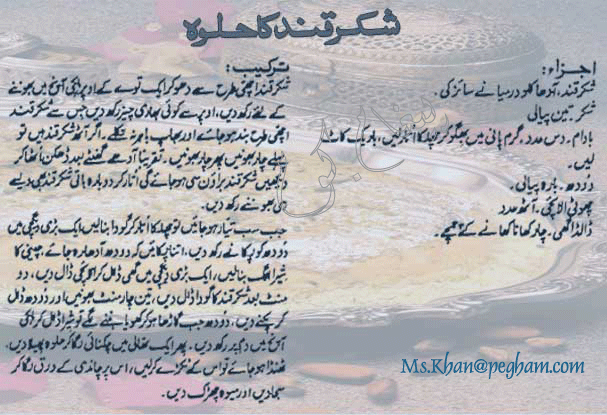 شکر قند کا حلوہ
اجزاء:
شکر قند۔ آدھا کلو درمیانے سائز کی۔
شکر۔ تین پیالی
بادام۔ دس عدد۔ گرم پانی میں بھگو کر چھلکا اُتار لیں، باریک کاٹ
لیں۔
دودھ۔ بارہ پیالی۔
چھوٹی الائچی۔ آٹھ عدد
ڈالڈا گھی۔ چار کھانا کھانے کے چمچے۔
ترکیب:
شکر قند اچھی طرح سے دھو کر ایک توے کے اوپر ہلکی آنچ میں بھوننے
کے لئے رکھ دیں، اوپر سے کوئی بھاری چیز رکھ دیں جس سے شکر قند
اچھی طرح بند ہو جائے اور بھاپ باہر نہ نکلے۔ اگر آٹھ شکر قند ہیں تو
پہلے چار بھونیں پھر چار بھونیں۔ تقریباً آدھے گھنٹے بعد ڈھکن اُٹھا کر
دیکھیں شکر قند براؤن سی ہو جائے گی اُتار کر دوبارہ باقی شکر قند بھی ویسے
ہی بھوننے رکھ دیں۔
جب سب تیار ہو جائیں تو چھلکا اُتار کر گودا بنا لیں، ایک بڑی دیگچی میں
دودھ کو پکانے رکھ دیں، اتنا پکائیں کہ دودھ آدھا رہ جائے، چینی کا
شیرا الگ بنا لیں، ایک بڑی دیگچی میں گھی ڈال کر الائچی ڈال دیں، دو
منٹ بعد شکر قند کا گودا ڈال دیں، تین چار منٹ بھونیں اور دودھ ڈال
کر پکنے دیں، دودھ جب گاڑھا ہو کر کھویا بننے لگے تو شیرا ڈال کر ہلکی
آنچ میں دم پر رکھ دیں۔ پھر ایک تھالی میں چکنائی لگا کر حلوہ پھیلا دیں،
ٹھنڈا ہو جائے تو اس کے ٹکڑے کر لیں، اس پر چاندی کے ورق لگا کر
سجا دیں اور میوہ چھڑک دیں۔
Ms.Khan@pegham.com